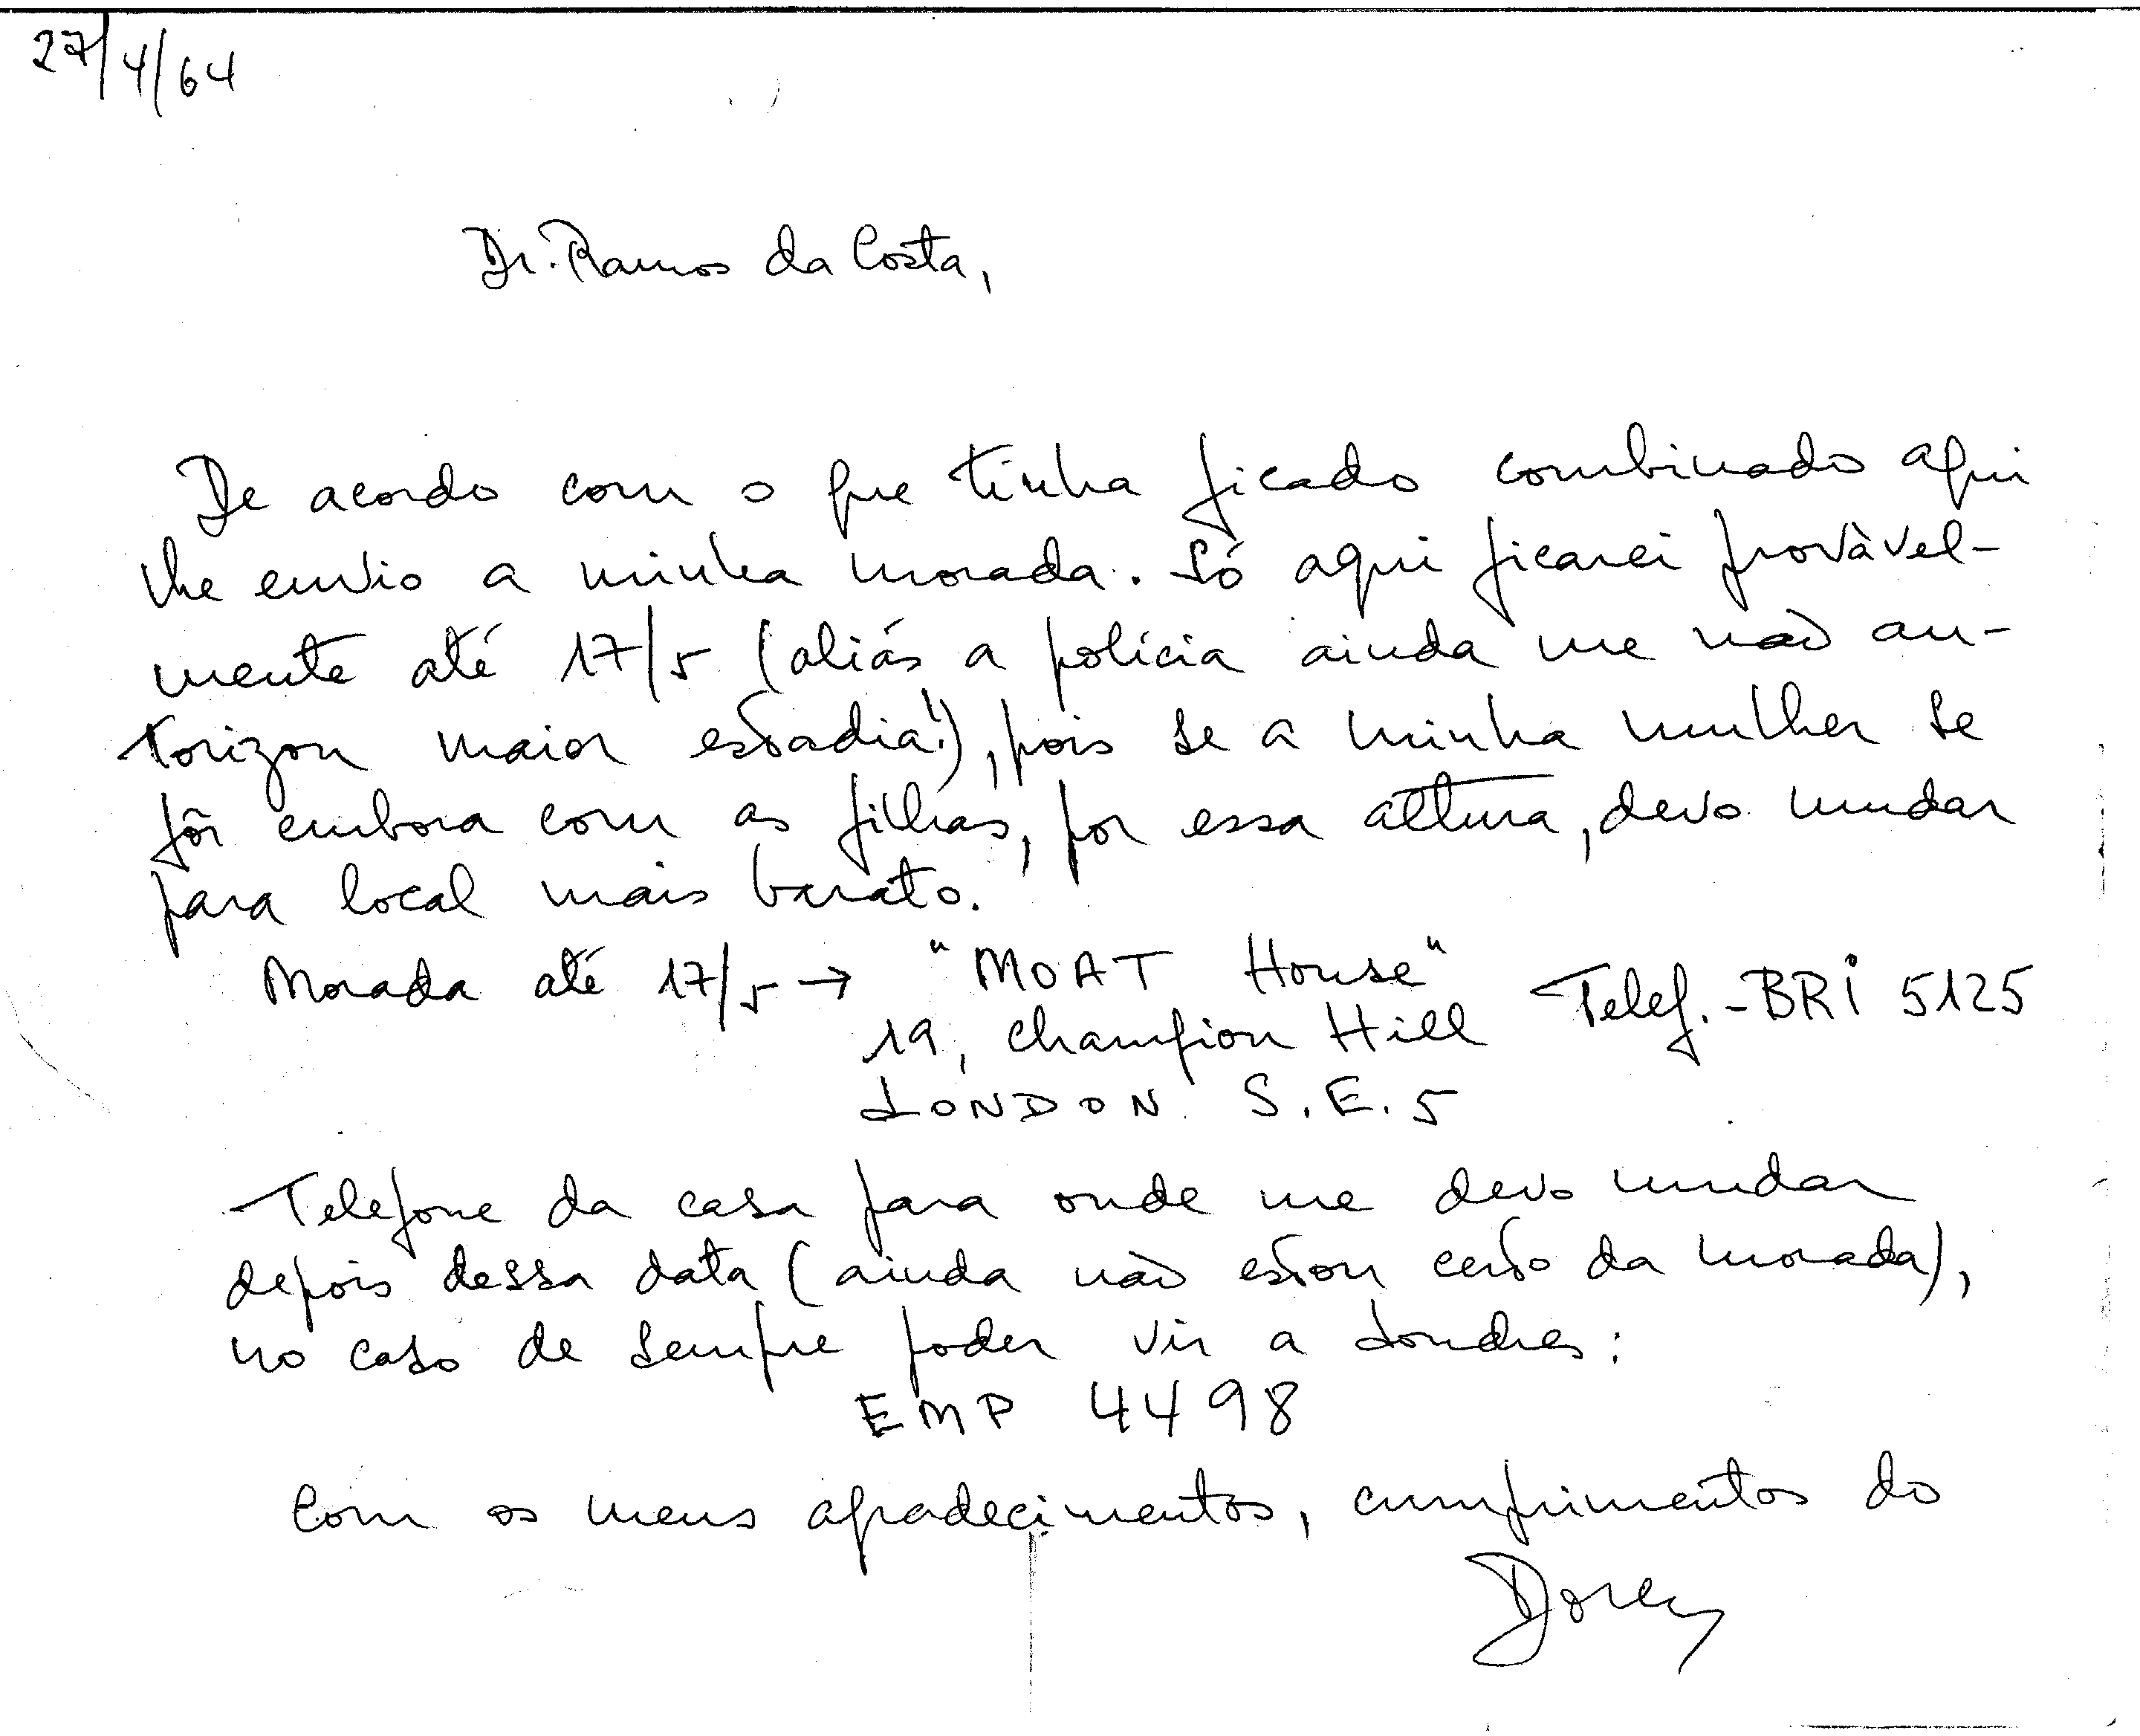 27/4/64
Dr. Ramos da Costa,
De acordo com o que tinha ficado combinado aqui
lhe envio a minha morada. Só aqui ficarei provàvel-
mente até 17/5 (aliás a polícia ainda me não au-
torizou maior estadia!), pois se a minha mulher se
fôr embora com as filhas, por essa altura, devo mudar
para local mais barato.
Morada até 17/5 → "MOAT House"
19, Champion Hill Telef. - BRI 5125
LONDON S.E.5
Telefone da casa para onde me devo mudar
depois dessa data (ainda não estou certo da morada),
no caso de sempre poder vir a Londres:
EMP 4498
Com os meus agradecimentos, cumprimentos do